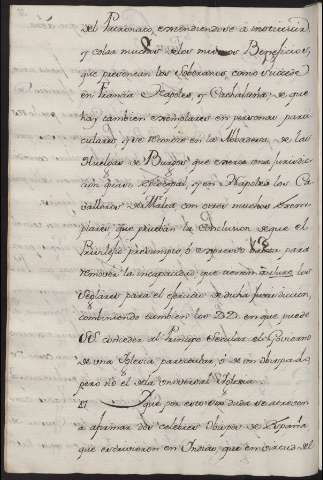 del Patronato, estendiendose a instituir,
y colar muchos de los mismos Beneficios,
que presentan los Soberanos, como sucede
en Francia Napoles, y Cathaluña de que
hay tambien exemplares en personas particulares
culares y se ven en la Abadesa de las
Huelgas de Burgos que exerce una jurisdic-
cion quasi Episcopal, y en Napoles los Ca-
valleros de Malta con otros muchos exem-
plares, que prueban la conclusion de que el
Privilegio presumpto ó expreso basta para
remover la incapacidad, que tienen los
Seglares para el exercicio de dicha jurisdiccion,
combiniendo tambien los D.D. en que puede
S.S. conceder al Principe Secular el Govierno
de una Iglesia particular, ó de un Obispado,
pero no el de la universal Iglesia.
27 Que por esto sin duda se
a afirmar dos celebres Obispos de España
que estuvieron en Indias, que en virtud del